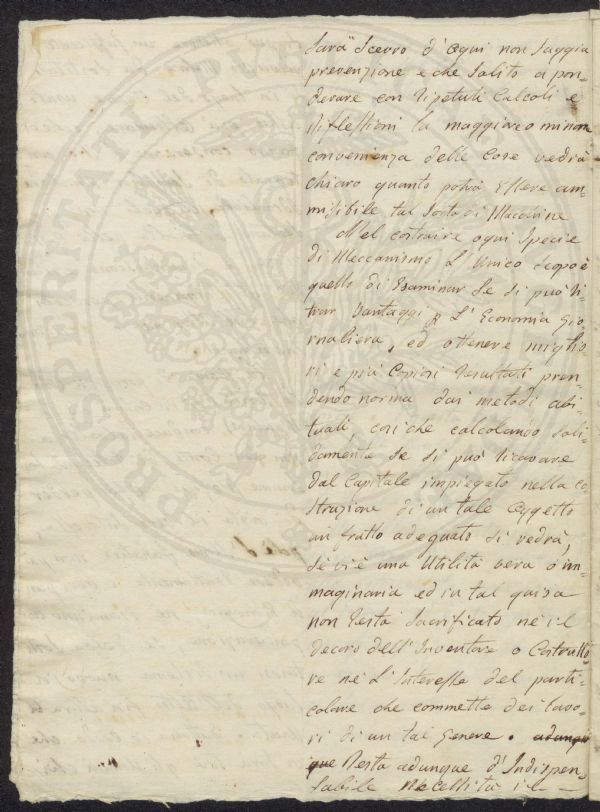 sarà Scevro d'ogni non saggia
prevenzione e che salito a pon-
derare con Ripetuti Calcoli e
Riflessioni la maggiore o minore
convenienza delle Cose vedrà
chiaro quanto potrà Essere am-
misibile tal sorta di Macchine
Nel costruire ogni specie
di Meccanismo L'Unico scopo è
quello di Esaminar se si può Ri-
trar Vantaggi p L'Economia Gio-
rnaliera, ed ottenere miglio-
ri e più Copiosi Resultati pren-
dendo norma dai metodi abi-
tuali, cosi che calcolando soli-
damente se si può Ricavare
dal Capitale impiegato nella co-
struzione di un tale Oggetto
un frutto adeguato si vedrà,
se vi è una Utilità vera o im-
maginaria ed in tal guisa
non Resta sacrificato nè il
decoro dell'Inventore o Costrutto-
re nè L'Interesse del parti-
colare che commette dei lavo-
ri di un tal Genere. adunqu
que Resta adunque d'Indispen-
sabile Necessità il
PROSPERITATI PUBLICAE